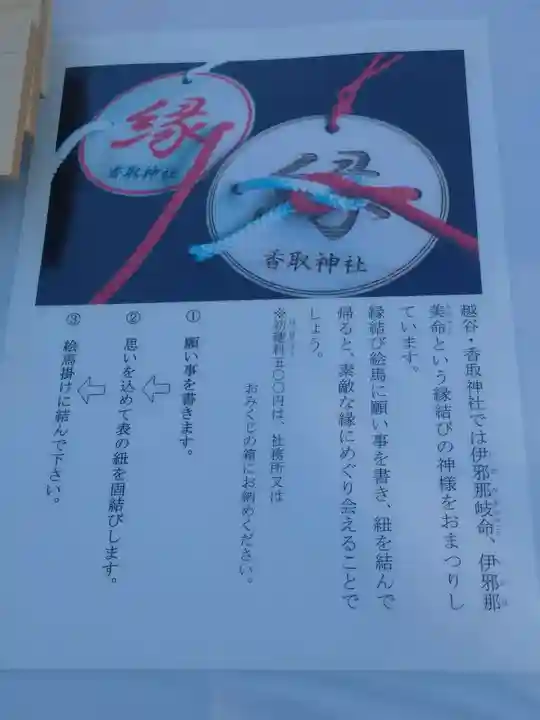 縁
香取神社
縁
香取神社
越谷・香取神社では伊邪那岐命、伊邪那
美命という縁結びの神様をおまつりし
ています。
縁結び絵馬に願い事を書き、紐を結んで
帰ると、素敵な縁にめぐり会えることで
しょう。
※初穂料五〇〇円は、社務所又は
おみくじの箱にお納めください。
① 願い事を書きます。
② 思いを込めて表の紐を固結びします。
③ 絵馬掛けに結んで下さい。